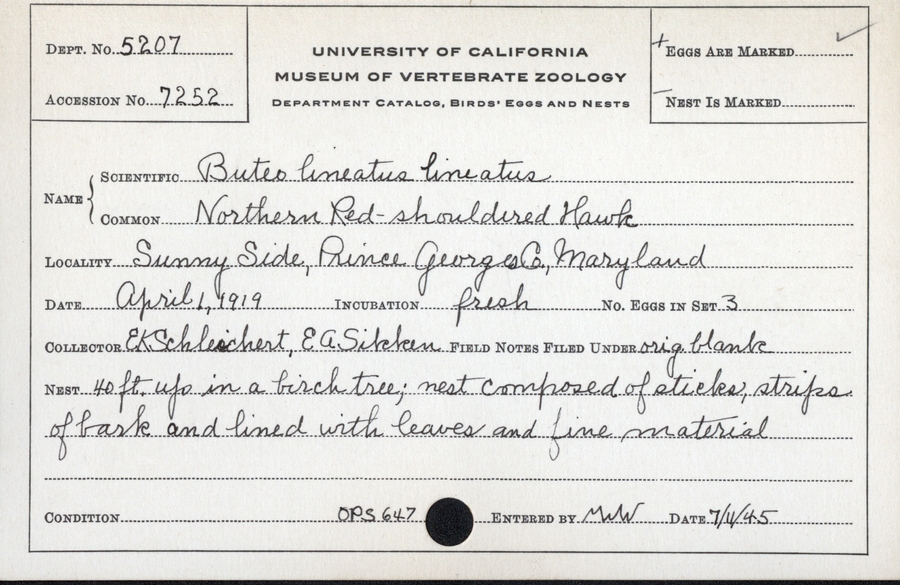 DEPT. No. 5207
ACCESSION No. 7252
UNIVERSITY OF CALIFORNIA
MUSEUM OF VERTEBRATE ZOOLOGY
DEPARTMENT CATALOG, BIRDS' EGGS AND NESTS
+ EGGS ARE MARKED ✓
— NEST IS MARKED
NAME { SCIENTIFIC Buteo lineatus lineatus
COMMON Northern Red-shouldered Hawk
LOCALITY Sunny Side, Prince Georges Co., Maryland
DATE April 1, 1919 INCUBATION fresh No. EGGS IN SET 3
COLLECTOR EKSchleichert, EASikken FIELD NOTES FILED UNDER orig. blank
NEST 40 ft. up in a birch tree; nest composed of sticks, strips
of bark and lined with leaves and fine material
CONDITION OPS 647 ENTERED BY MWW DATE 7/11/45